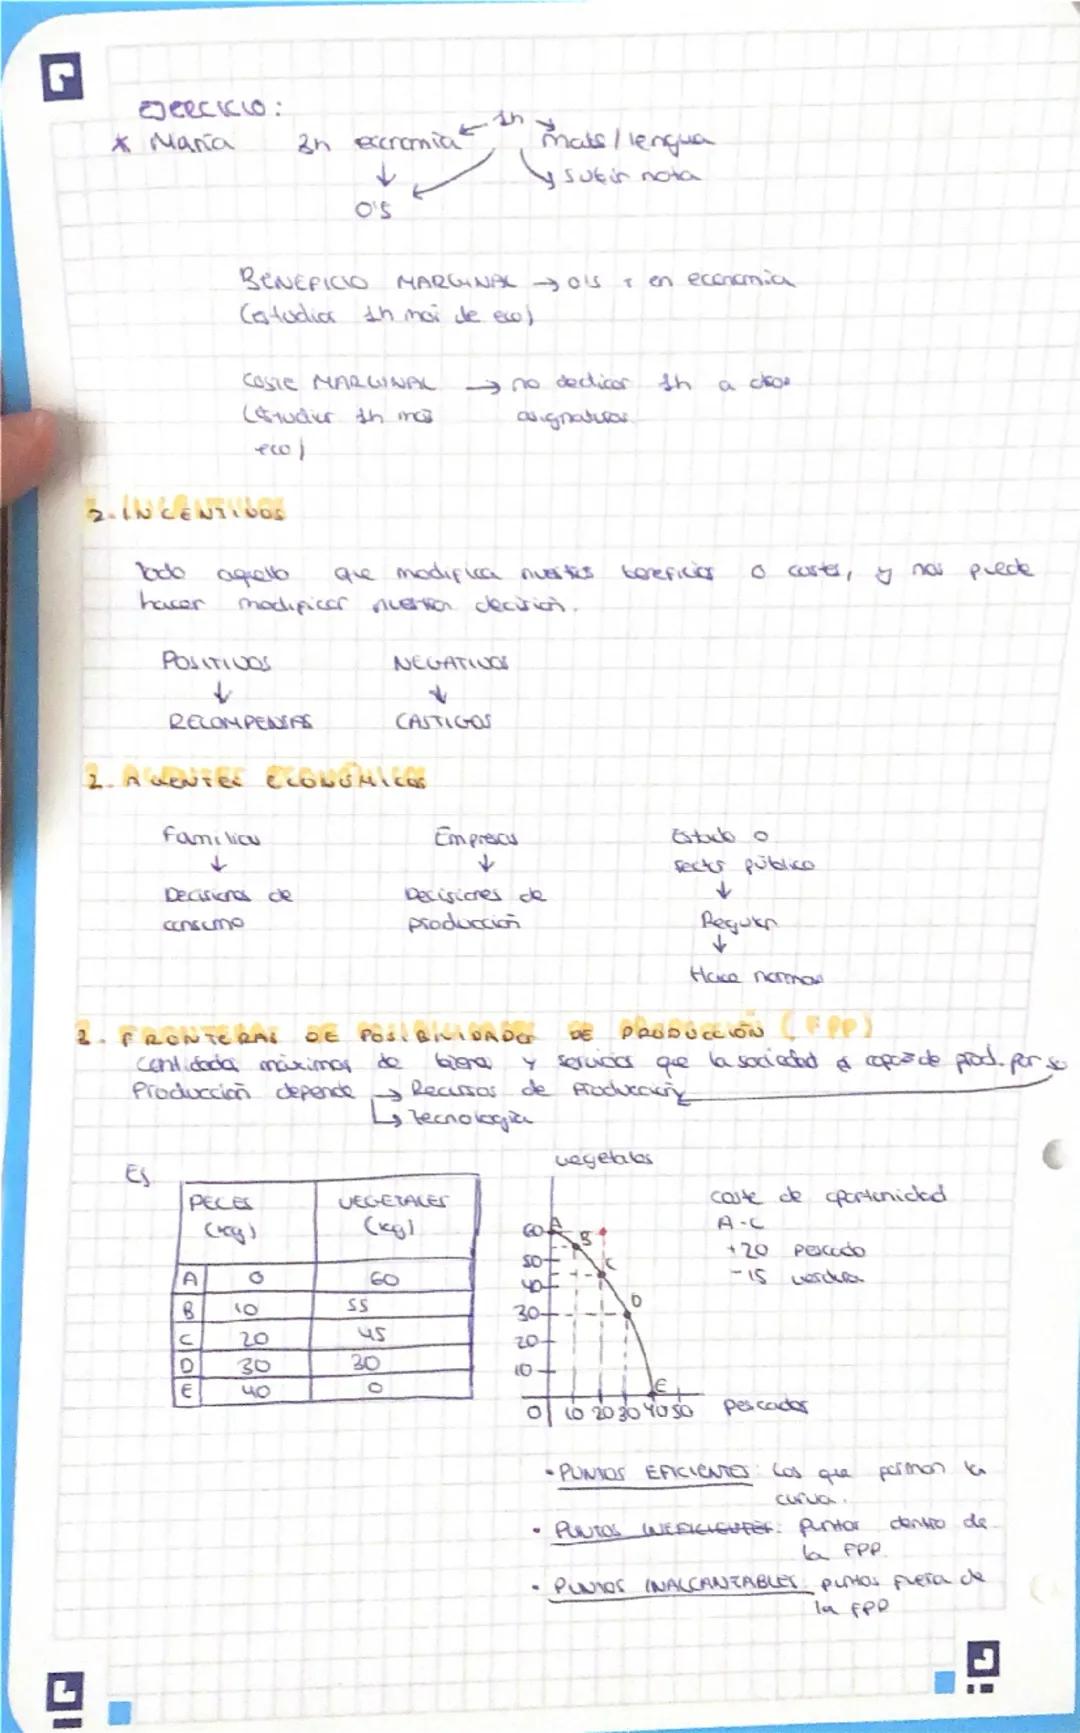 EJERCICIO:
* María 3h economía ← 1h → mats/lengua
↓ subir nota
0'5
BENEFICIO MARGINAL → 0'5 + en economía
(estudiar 1h más de eco)
COSTE MARGINAL → no dedicar 1h a otras
(Estudiar 1h más asignaturas
eco)
2. INCENTIVOS
Todo aquello que modifica nuestros beneficios o costes, y nos puede
hacer modificar nuestra decisión.
POSITIVOS NEGATIVOS
↓ ↓
RECOMPENSAS CASTIGOS
2. AGENTES ECONÓMICOS
Familias Empresas Estado o
↓ ↓ sector público
Decisiones de Decisiones de ↓
consumo producción Regular
↓
Hace normas
2. FRONTERAS DE POSIBILIDADES DE PRODUCCIÓN (FPP)
Cantidades máximas de bienes y servicios que la sociedad es capaz de prod. por sí
Producción depende → Recursos de Producción
↳ Tecnología
Ej
PECES (kg) VEGETALES (kg)
A 0 60
B 10 55
C 20 45
D 30 30
E 40 0
vegetales
60 A
B
50 C
40
30 D
20
10
E
0 10 20 30 40 50 pescados
coste de oportunidad
A-C
+20 pescado
-15 verdura
• PUNTOS EFICIENTES: Los que forman la
curva.
• PUNTOS INEFICIENTES: Puntos dentro de
la FPP.
• PUNTOS INALCANZABLES: puntos fuera de
la FPP